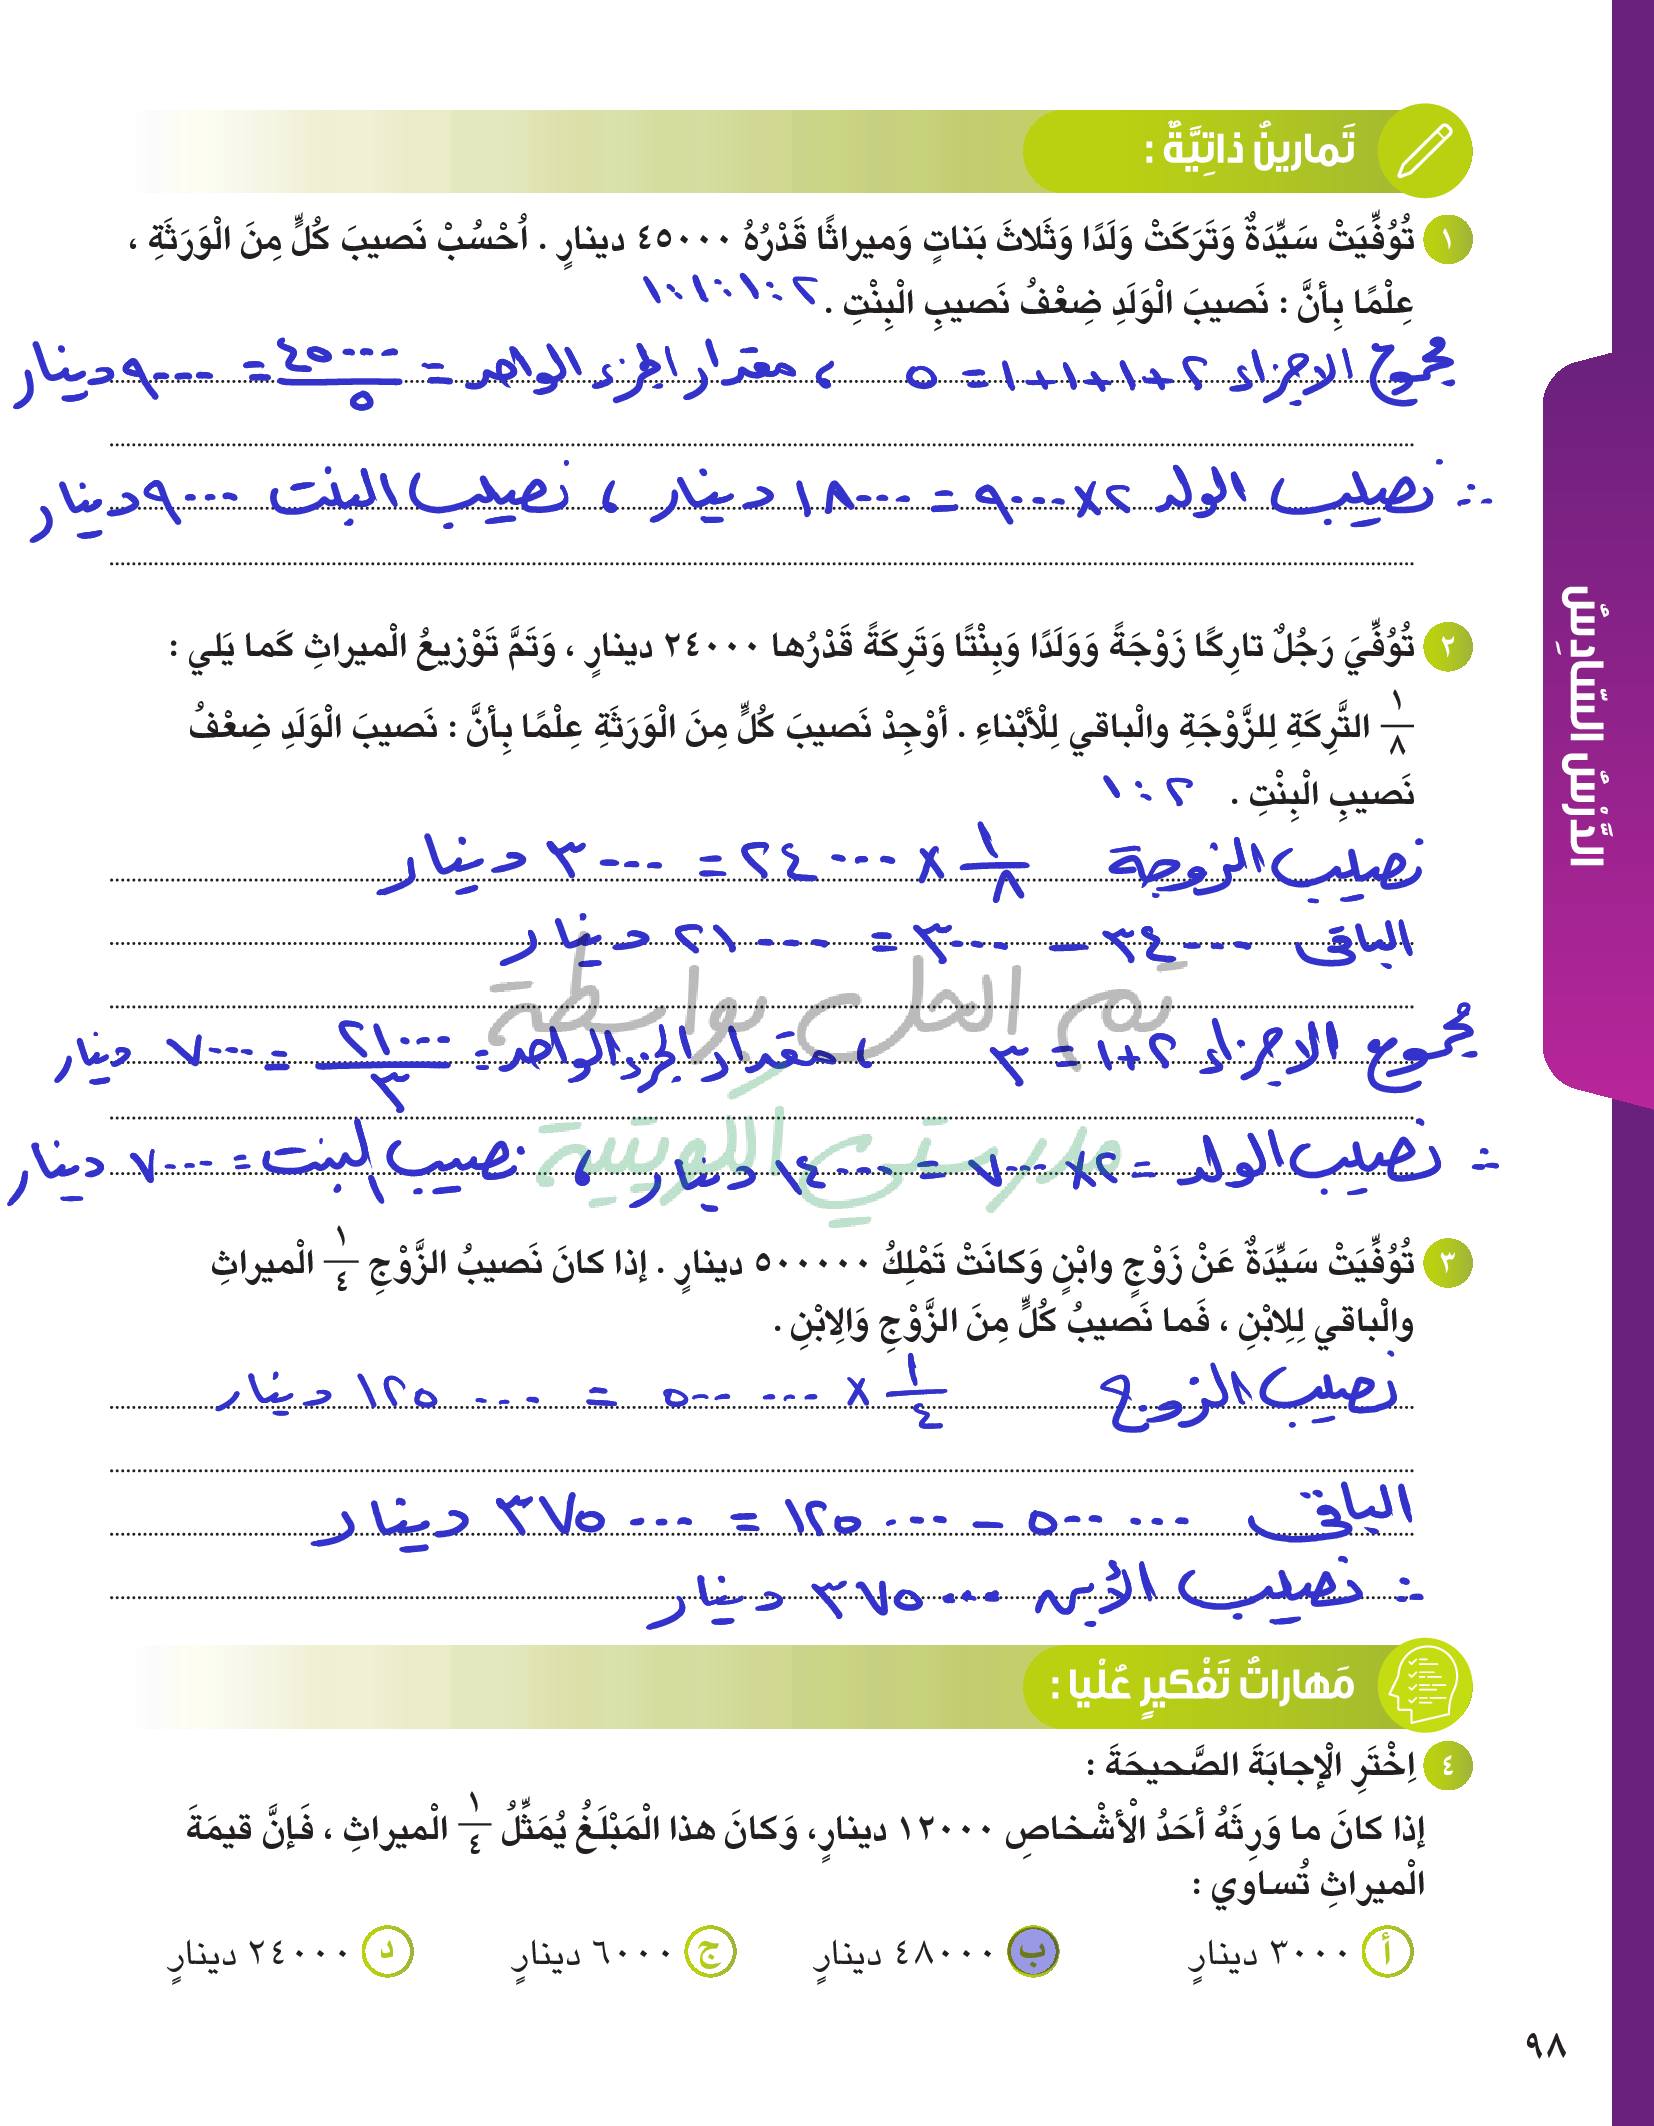 تَمارينُ ذاتِيَّةٌ :
١ تُوُفِّيَتْ سَيِّدَةٌ وَتَرَكَتْ وَلَدًا وَثَلاثَ بَناتٍ وَميراثًا قَدْرُهُ ٤٥٠٠٠ دينارٍ . اُحْسُبْ نَصيبَ كُلٍّ مِنَ الْوَرَثَةِ ،
عِلْمًا بِأنَّ : نَصيبَ الْوَلَدِ ضِعْفُ نَصيبِ الْبِنْتِ . ٢ : ١ : ١ : ١
مجموع الاجزاء ٢+١+١+١ = ٥ ، مقدار الجزء الواحد = ٤٥٠٠٠/٥ = ٩٠٠٠ دينار
∴ نصيب الولد ٢×٩٠٠٠ = ١٨٠٠٠ دينار ، نصيب البنت ٩٠٠٠ دينار
٢ تُوُفِّيَ رَجُلٌ تارِكًا زَوْجَةً وَوَلَدًا وَبِنْتًا وَتَرِكَةً قَدْرُها ٢٤٠٠٠ دينارٍ ، وَتَمَّ تَوْزيعُ الْميراثِ كَما يَلي :
١/٨ التَّرِكَةِ لِلزَّوْجَةِ والْباقي لِلْأبْناءِ . أوْجِدْ نَصيبَ كُلٍّ مِنَ الْوَرَثَةِ عِلْمًا بِأنَّ : نَصيبَ الْوَلَدِ ضِعْفُ
نَصيبِ الْبِنْتِ . ٢ : ١
نصيب الزوجة ١/٨ × ٢٤٠٠٠ = ٣٠٠٠ دينار
الباقى ٣٤٠٠٠ − ٣٠٠٠ = ٢١٠٠٠ دينار
تم الحل بواسطة
مجموع الاجزاء ٢+١ = ٣ ، مقدار الجزء الواحد = ٢١٠٠٠/٣ = ٧٠٠٠ دينار
مدرستي الكويتية
∴ نصيب الولد = ٢×٧٠٠٠ = ١٤٠٠٠ دينار ، نصيب البنت = ٧٠٠٠ دينار
٣ تُوُفِّيَتْ سَيِّدَةٌ عَنْ زَوْجٍ وابْنٍ وَكانَتْ تَمْلِكُ ٥٠٠٠٠٠ دينارٍ . إذا كانَ نَصيبُ الزَّوْجِ ١/٤ الْميراثِ
والْباقي لِلِابْنِ ، فَما نَصيبُ كُلٍّ مِنَ الزَّوْجِ وَالِابْنِ .
نصيب الزوج ١/٤ × ٥٠٠٠٠٠ = ١٢٥٠٠٠ دينار
الباقى ٥٠٠٠٠٠ − ١٢٥٠٠٠ = ٣٧٥٠٠٠ دينار
∴ نصيب الأبن ٣٧٥٠٠٠ دينار
مَهاراتُ تَفْكيرٍ عُلْيا :
٤ اِخْتَرِ الْإجابَةَ الصَّحيحَةَ :
إذا كانَ ما وَرِثَهُ أحَدُ الْأشْخاصِ ١٢٠٠٠ دينارٍ، وَكانَ هذا الْمَبْلَغُ يُمَثِّلُ ١/٤ الْميراثِ ، فَإنَّ قيمَةَ
الْميراثِ تُساوي :
أ ٣٠٠٠ دينارٍ ب ٤٨٠٠٠ دينارٍ ج ٦٠٠٠ دينارٍ د ٢٤٠٠٠ دينارٍ
٩٨
الدَّرْسُ السّادِسُ